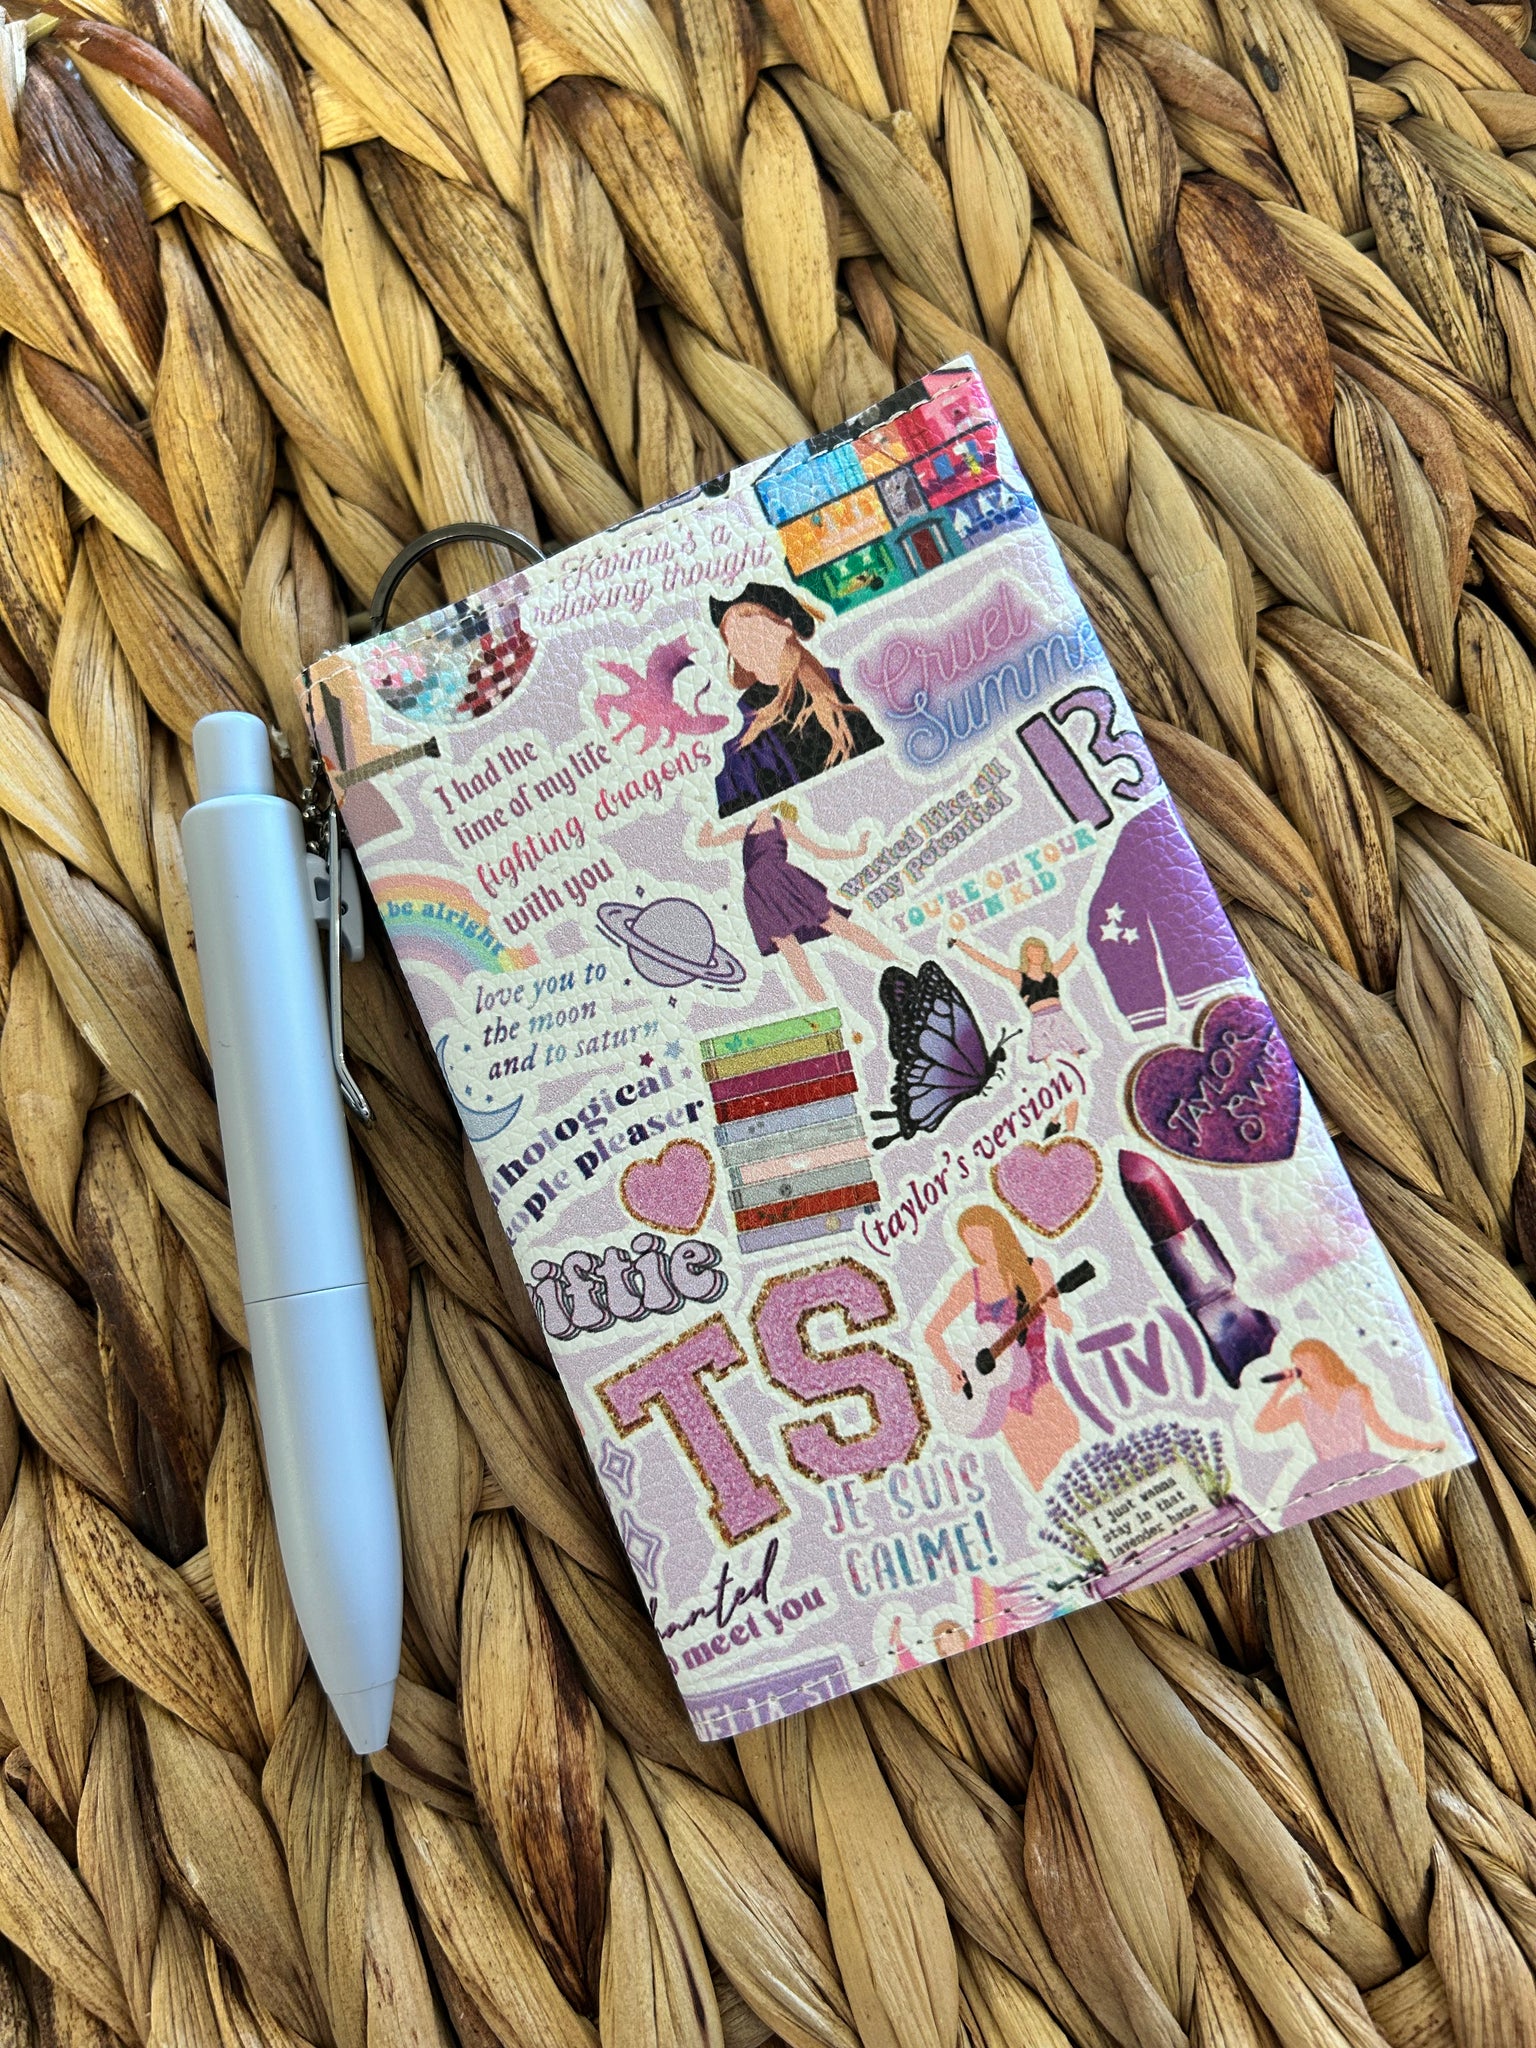 Karma's a
relaxing thought
Cruel
Summe
13
I had the
time of my life
fighting dragons
with you
wasted like all
my potential
YOU'RE ON YOUR
OWN KID
be alright
love you to
the moon
and to saturn
thological
eople pleaser
TAYLOR
SWIF
(taylor's version)
wiftie
TS
(TV)
JE SUIS
CALME!
I just wanna
stay in that
lavender haze
hanted
o meet you
NELIA ST